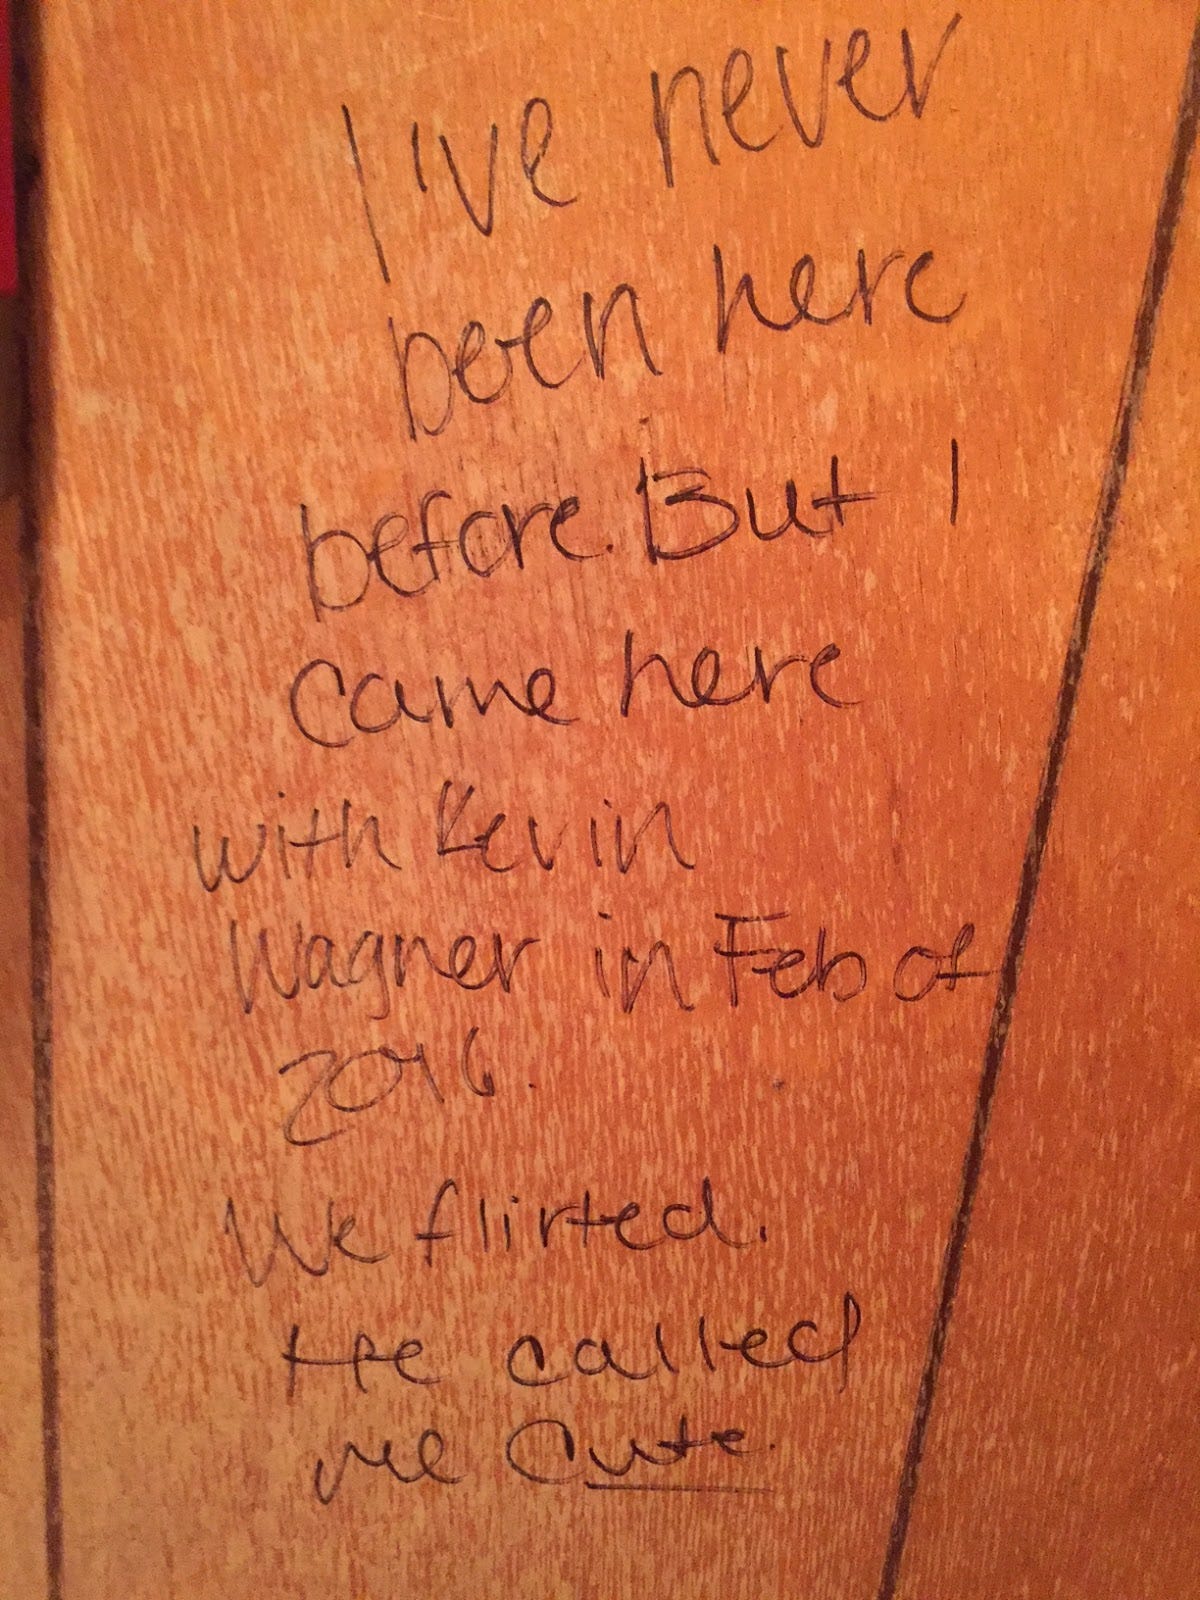 I've never
been here
before. But I
came here
with Kevin
Wagner in Feb of
2016.
We flirted.
He called
me Cute.